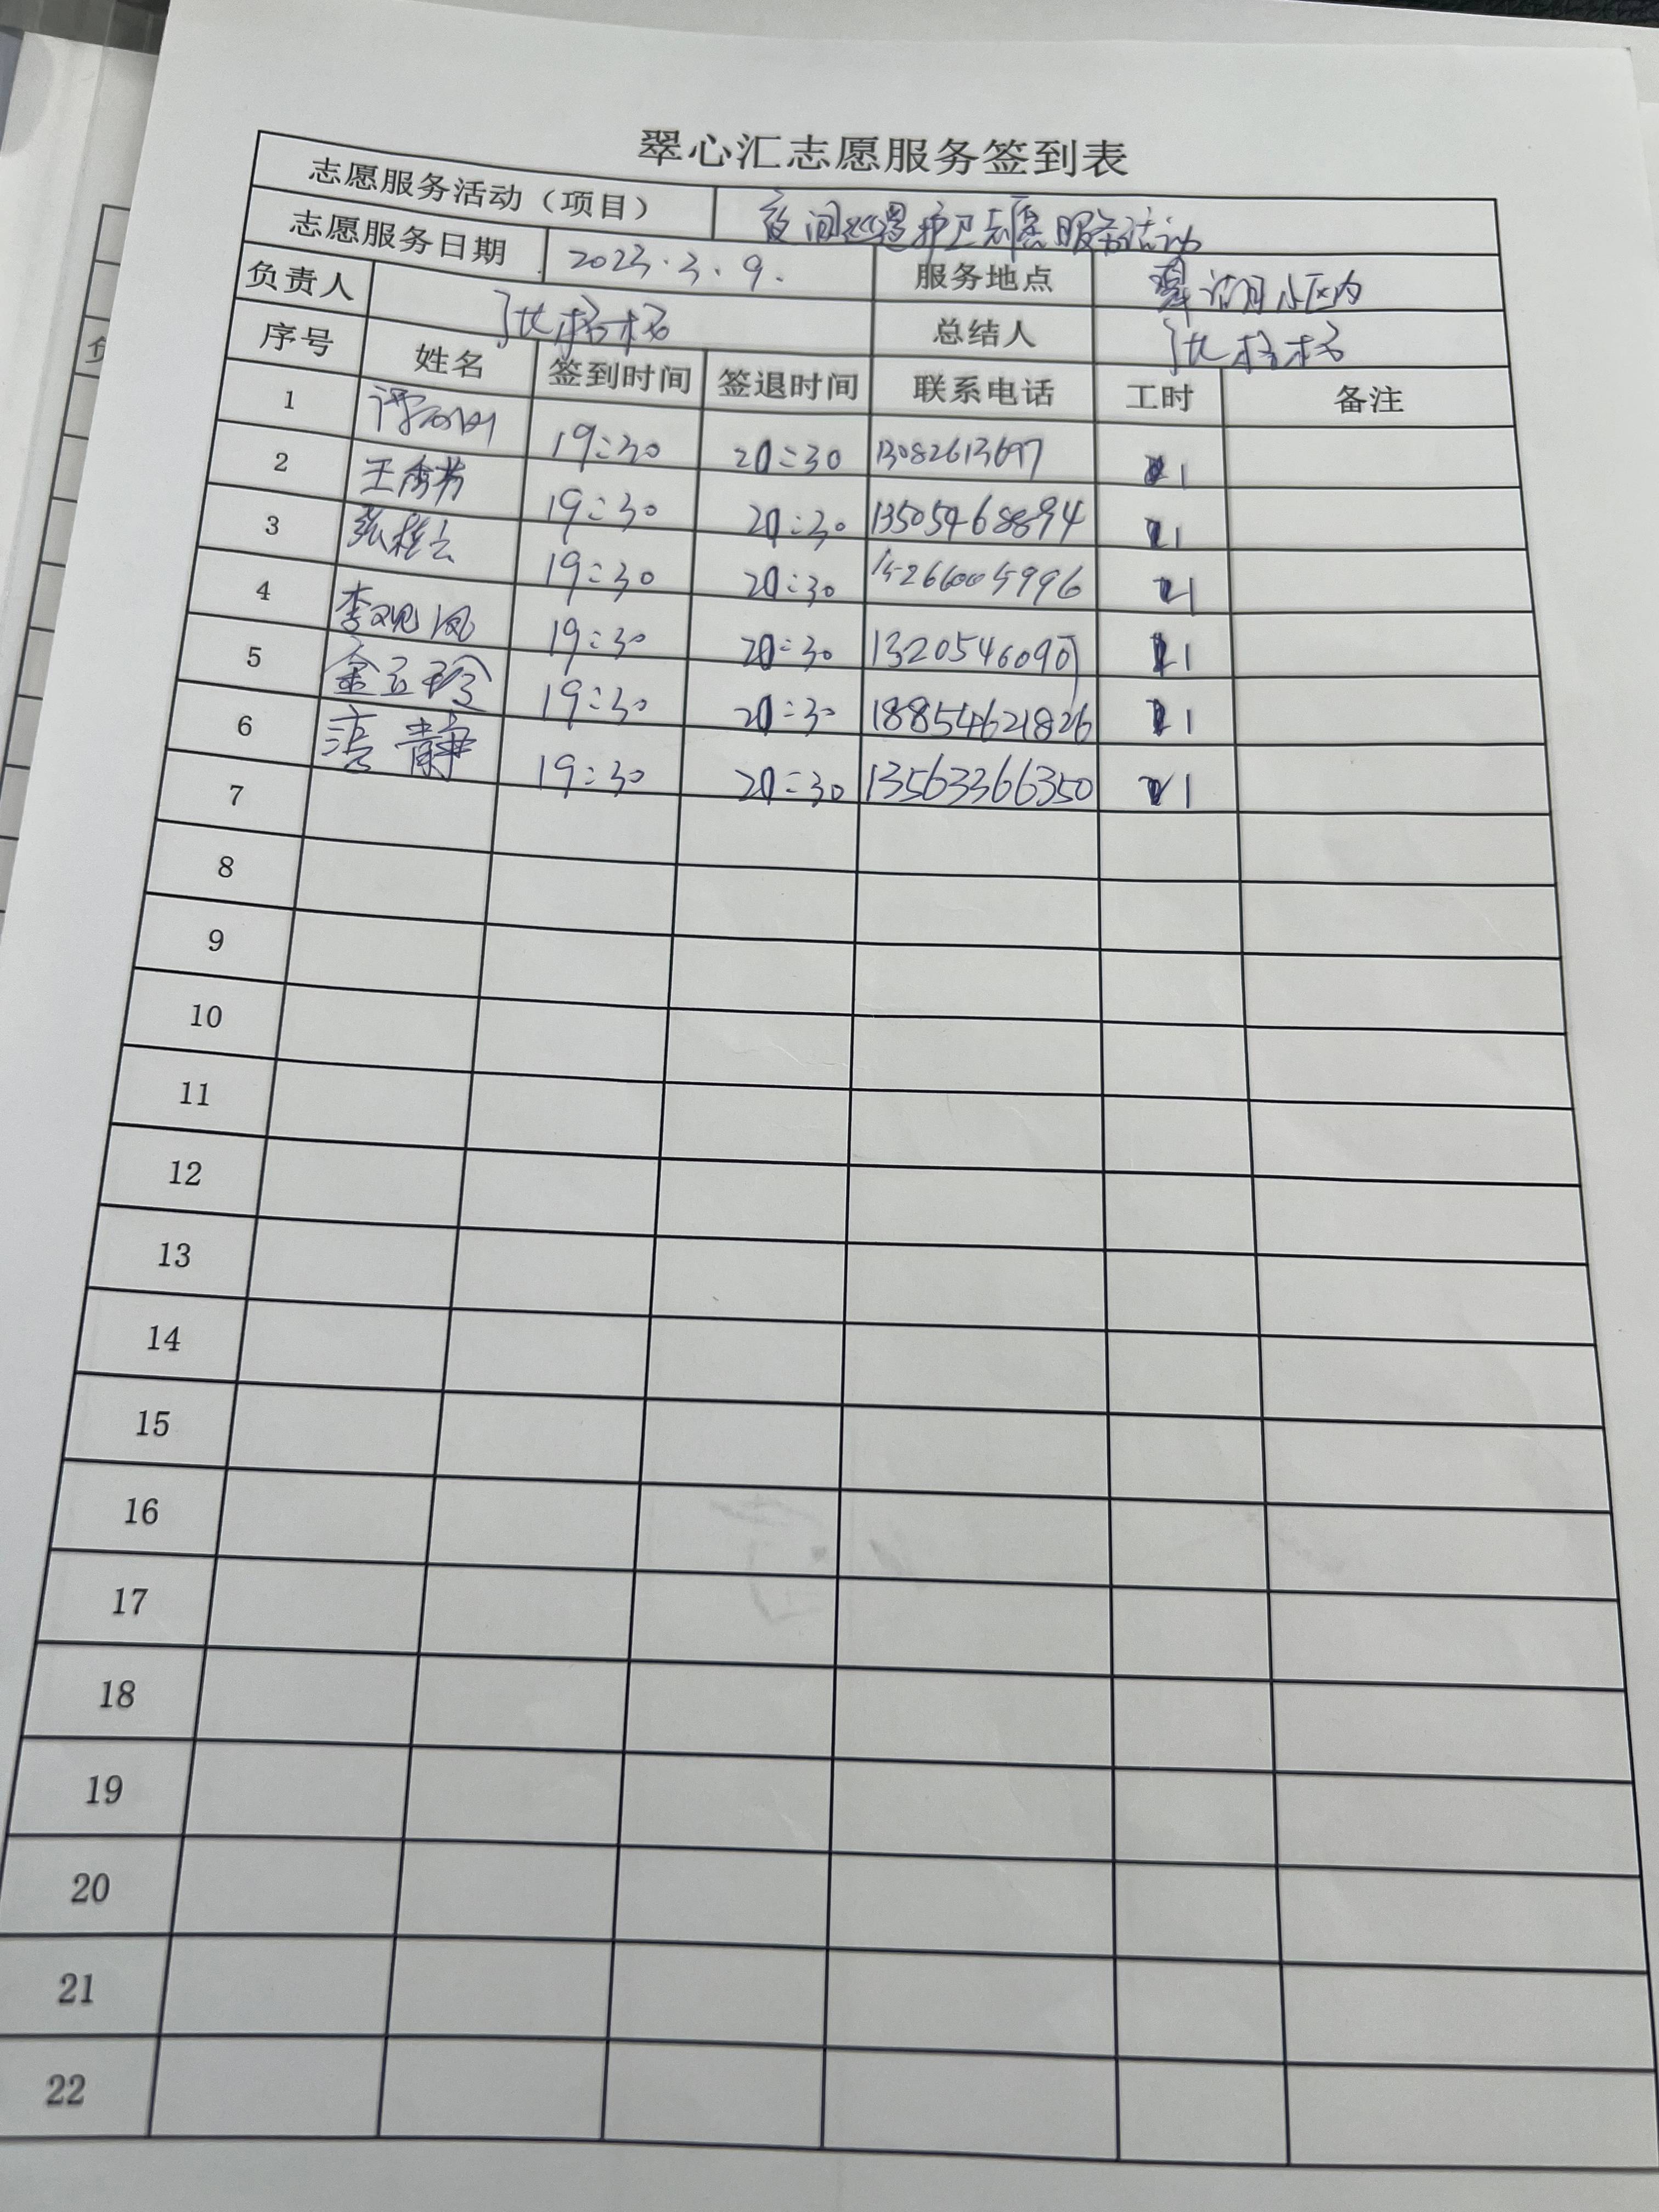 翠心汇志愿服务签到表
志愿服务活动（项目） 夜间巡逻护卫志愿服务活动
志愿服务日期 2023.3.9. 服务地点 小区内
负责人 张格格 总结人 张格格
序号 姓名 签到时间 签退时间 联系电话 工时 备注
1 19:30 20:30 1
2 王秀芳 19:30 20:30 13505468894 1
3 张桂云 19:30 20:30 15266005996 1
4 李观凤 19:30 20:30 1
5 金玉珍 19:30 20:30 18854621826 1
6 静 19:30 20:30 13563366350 1
7
8
9
10
11
12
13
14
15
16
17
18
19
20
21
22